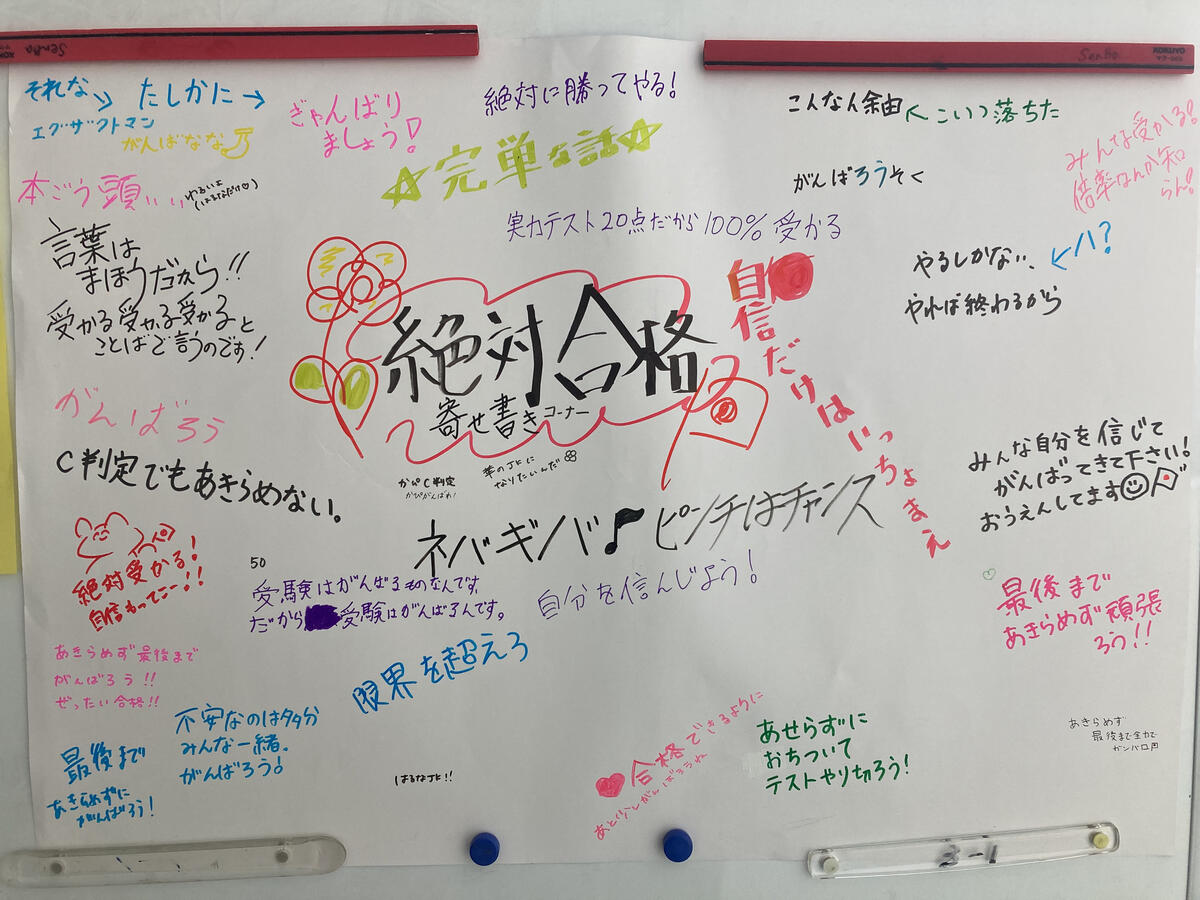 SenBo
KOKUYO
それな
たしかに→
エグザクトマン
がんばなな
ぎゃんばり
ましょう!
絶対に勝ってやる!
☆完単な話☆
こんなん余由
こいつ落ちた
みんな受かる!
倍率なんか知
らん!
本ごう頭
がんばろうそく
実力テスト20点だから100%受かる
言葉は
まほうだから!!
受かる受かる受かると
ことばで言うのです!
やるしかない、
←ハ?
やれば終わるから
自信だけはいっちょまえ
絶対合格
寄せ書きコーナー
がんばろう
C判定でもあきらめない。
かぴC判定
かぴがんばれ!
なりたいんだ
みんな自分を信じて
がんばってきて下さい!
おうえんしてます
ネバギバ♪ピンチはチャンス
絶対受かる!
自信もってこー!!
50
受験はがんばるものなんです。
だから受験はがんばるんです。
自分を信んじよう!
最後まで
あきらめず頑張
ろう!!
あきらめず最後まで
がんばろう!!
ぜったい合格!!
限界を超えろ
不安なのは多分
みんな一緒。
がんばろう!
最後まで
あきらめずに
がんばろう!
はるなJK!!
合格できるように
あと少しがんばろうね
あせらずに
おちついて
テストやり切ろう!
あきらめず
最後まで全力で
ガンバロ円
3-1